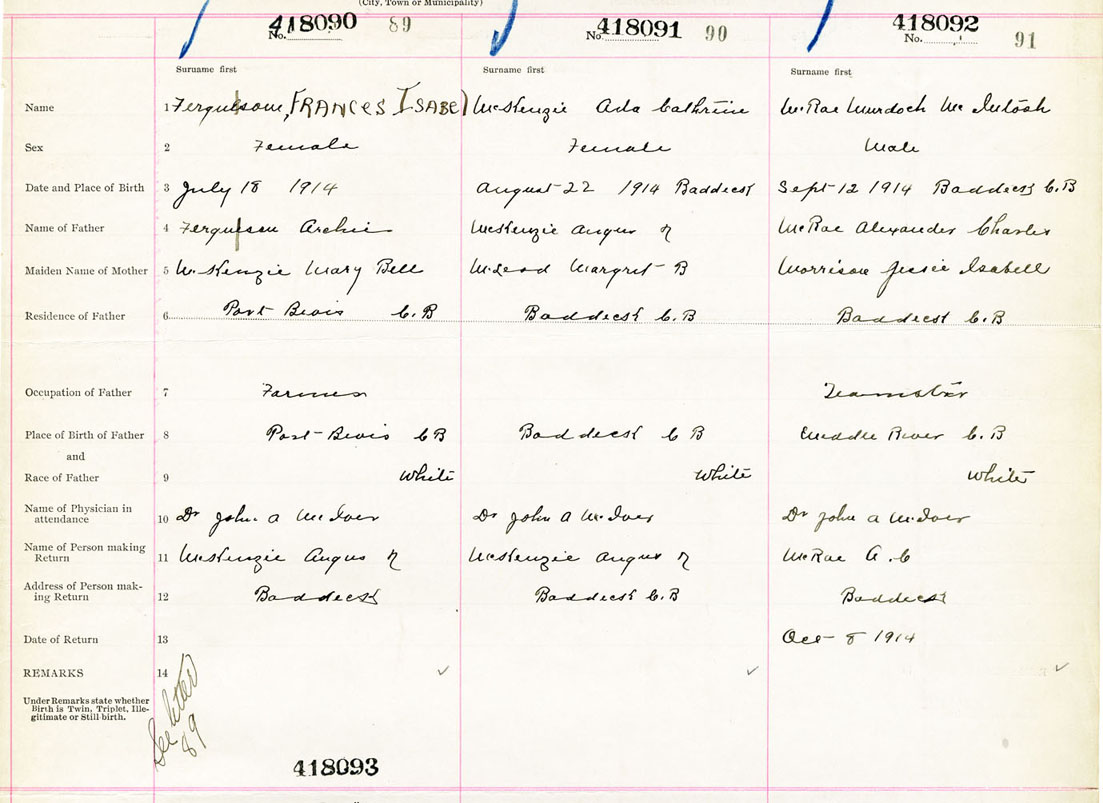 (City, Town or Municipality)
418090 89 418091 90 418092 91
No. No. No.
Surname first Surname first Surname first
Name 1 Ferguson, FRANCES ISABEL McKenzie Ada Cathrine McRae Murdoch McIntosh
Sex 2 Female Female Male
Date and Place of Birth 3 July 18 1914 August 22 1914 Baddeck Sept 12 1914 Baddeck C.B
Name of Father 4 Ferguson Archie McKenzie Angus McRae Alexander Charles
Maiden Name of Mother 5 McKenzie Mary Bell McLeod Margret B Morrison Jessie Isabell
Residence of Father 6 Port Bevis C.B Baddeck C.B Baddeck C.B
Occupation of Father 7 Farmer Teamster
Place of Birth of Father 8 Port Bevis CB Baddeck CB Middle River C.B
and
Race of Father 9 White White White
Name of Physician in
attendance 10 Dr John A McIver Dr John A McIver Dr John A McIver
Name of Person making
Return 11 McKenzie Angus McKenzie Angus McRae A.C
Address of Person mak-
ing Return 12 Baddeck Baddeck C.B Baddeck
Date of Return 13 Oct 8 1914
REMARKS 14
Under Remarks state whether
Birth is Twin, Triplet, Ille-
gitimate or Still-birth.
See letter
89
418093